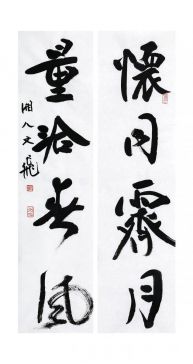 懷同霽月
量洽春風
湘人文飛